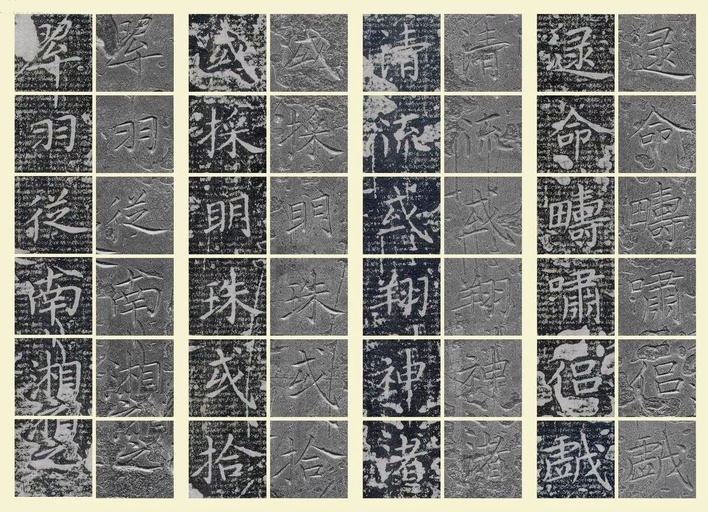 遝命疇嘯侶戲
遝命疇嘯侶戲
清流或翔神渚
清流或翔神渚
或採明珠或拾
或採明珠或拾
翠羽從南湘之
翠羽從南湘之